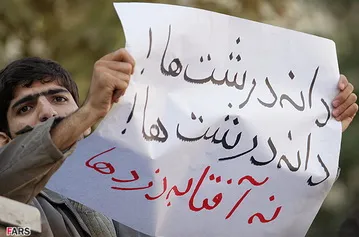 دانه درشت ها!
دانه درشت ها!
نه آفتابه دزدها
FARS